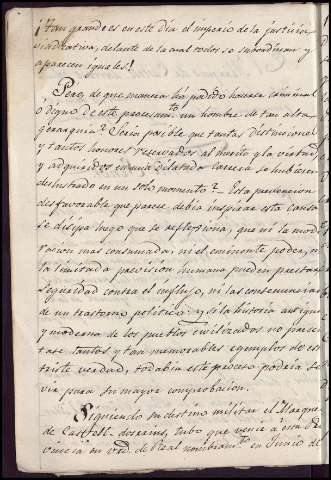 ¡Tan grande es en este dia el imperio de la justicia
vindicativa, delante de la cual todos se subordinan y
aparecen iguales!
Pero, de que manera há podido hacerse criminal
ó digno de este procesamto. un hombre de tan alta
gerarquia? Será posible que tantas distinciones
y tantos honores reservados al merito y la virtud,
y adquiridos en una dilatada carrera se hubieren
deslustrado en un solo momento? Esta prevencion
desfavorable que parece debia inspirar esta causa
se disipa luego que se reflexiona, que ni la mode
racion mas consumada, ni el eminente poder, ni
la limitada prevision humana pueden prestar
seguridad contra el influjo, ni las consecuencias
de un trastorno politico: y si la historia antigua
y moderna de los pueblos civilizados no presen
tase tantos y tan memorables egemplos de esta
triste verdad, todabia este proceso podria ser
vir para su mayor comprobacion.
Siguiendo su destino militar el Marques
de Castell-dosrius, tubo que venir a esta Pro
vincia en vrd. de Real nombramto. en Junio de